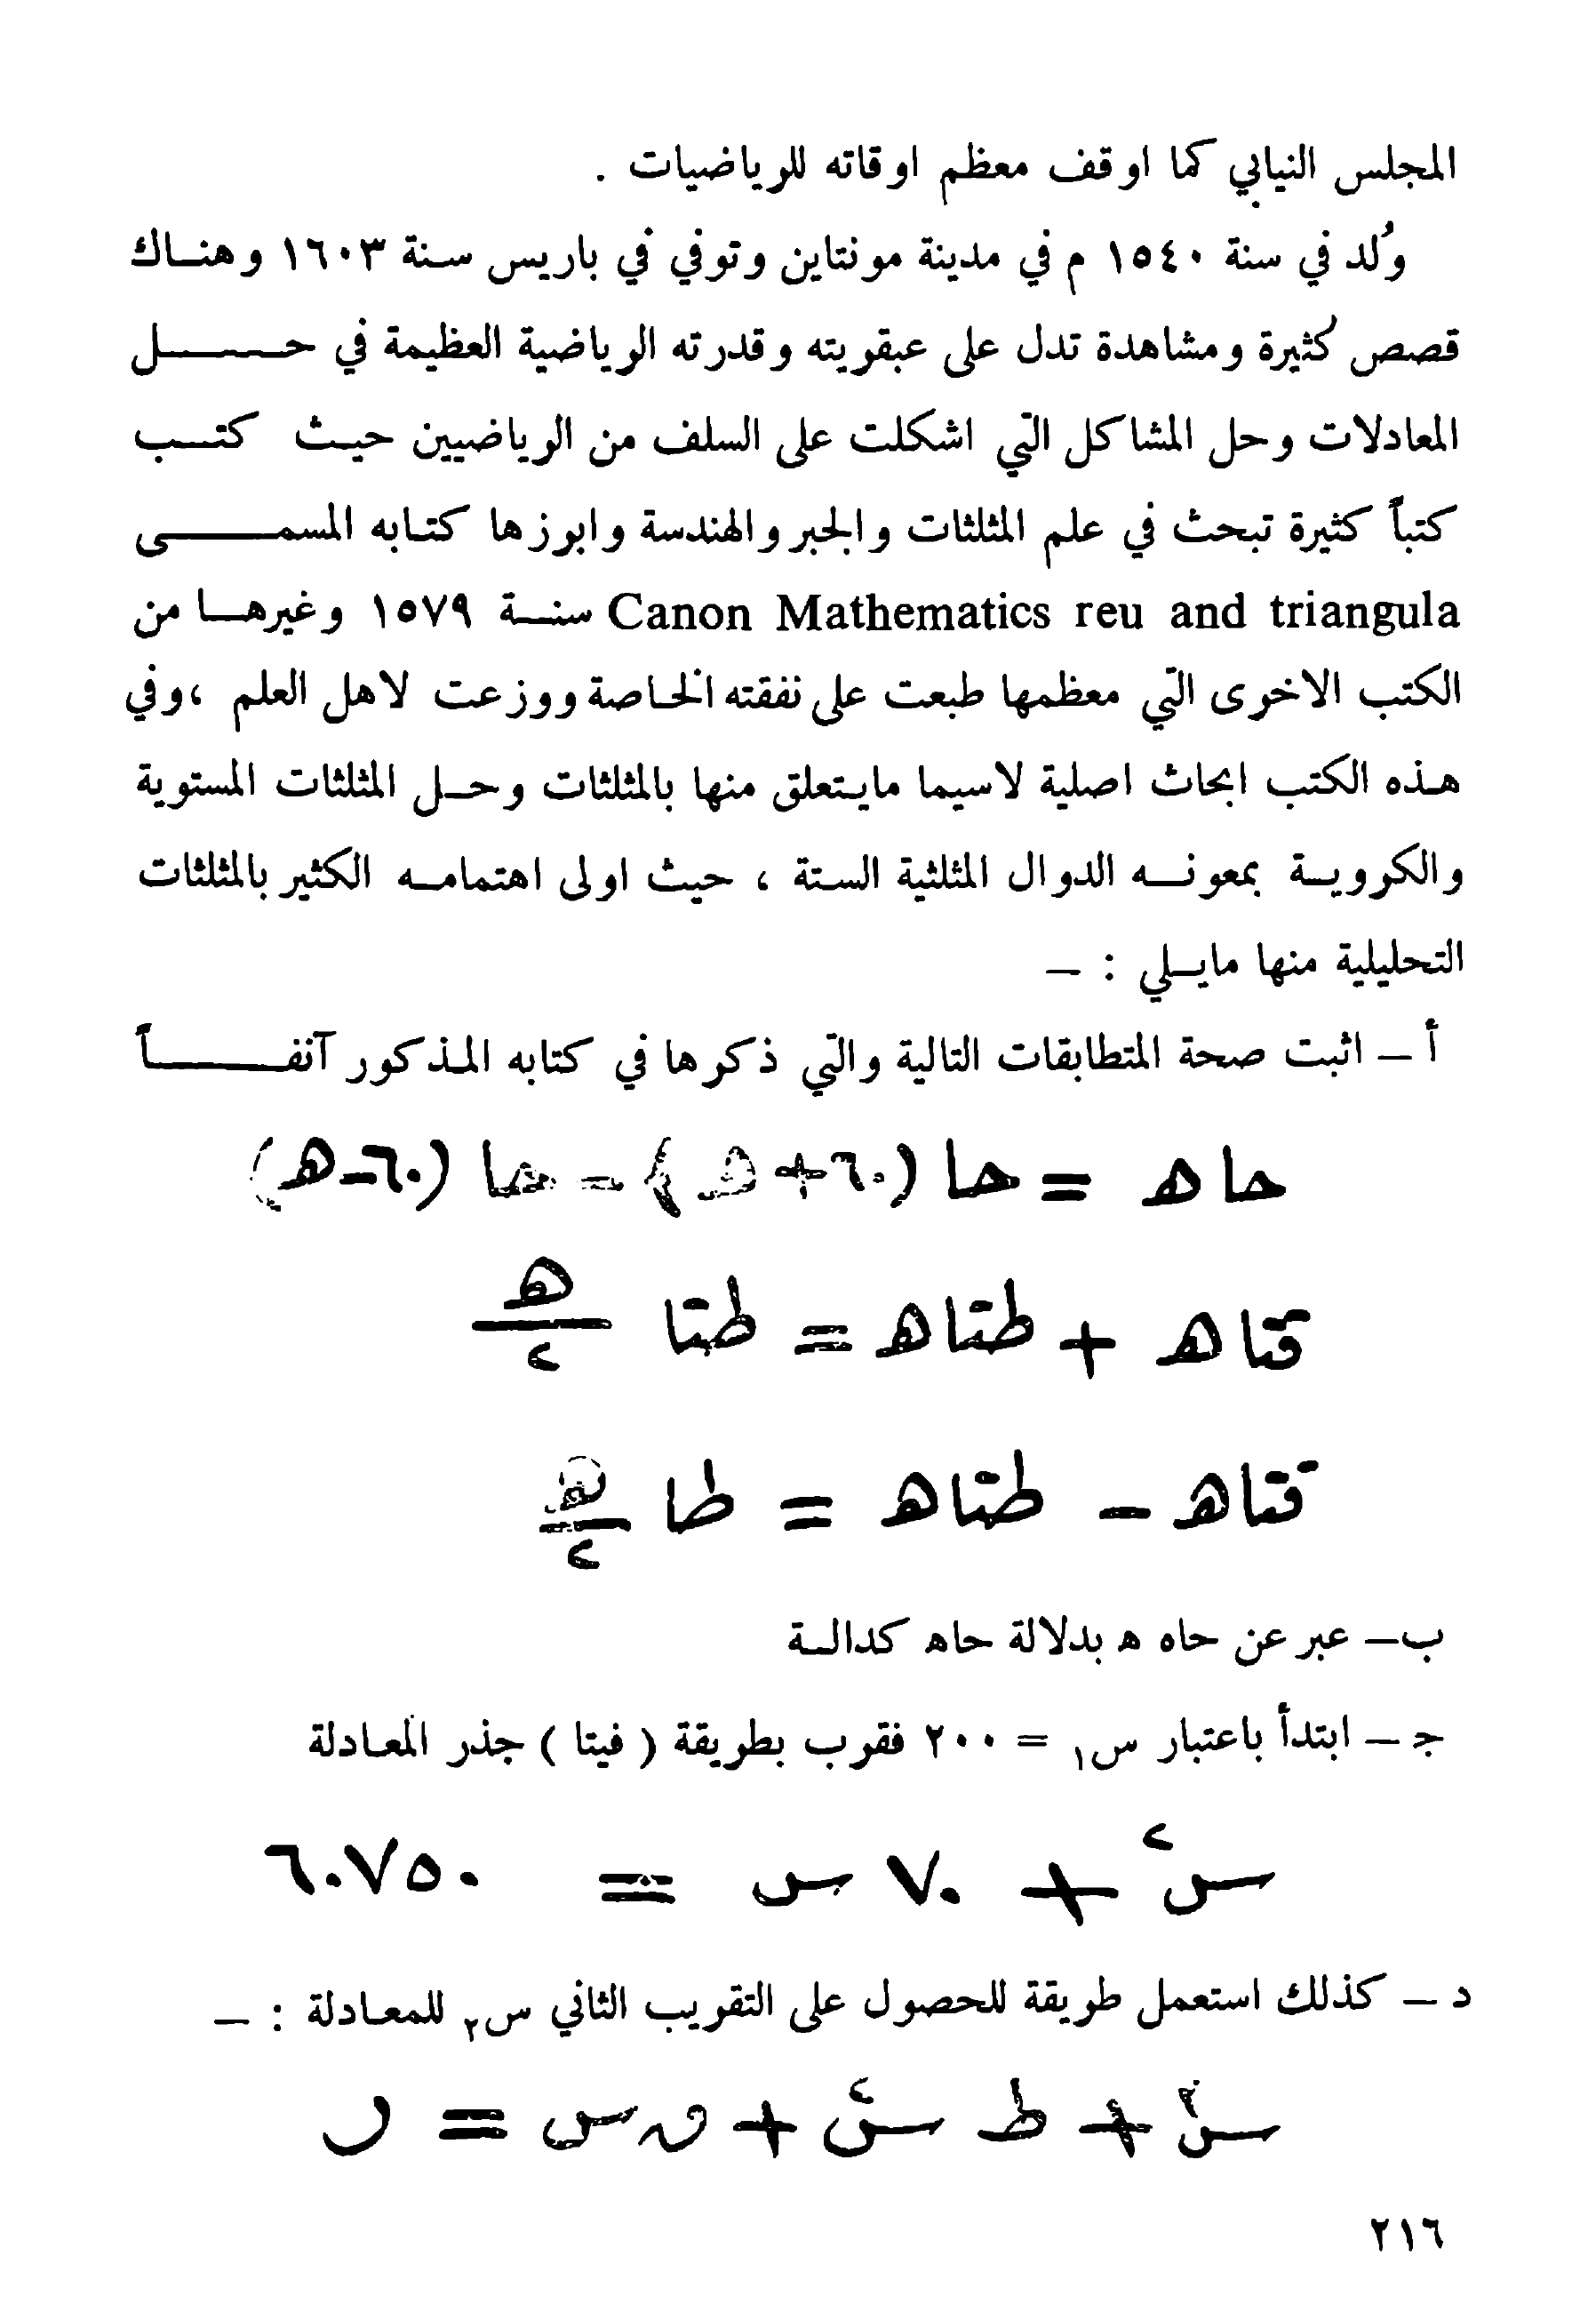 المجلس النيابي كما اوقف معظم اوقاته للرياضيات .
وُلد في سنة ١٥٤٠ م في مدينة مونتاين وتوفي في باريس سنة ١٦٠٣ وهناك
قصص كثيرة ومشاهدة تدل على عبقريته وقدرته الرياضية العظيمة في حل
المعادلات وحل المشاكل التي اشكلت على السلف من الرياضيين حيث كتب
كتباً كثيرة تبحث في علم المثلثات والجبر والهندسة وابرزها كتابه المسمى
Canon Mathematics reu and triangula سنة ١٥٧٩ وغيرها من
الكتب الاخرى التي معظمها طبعت على نفقته الخاصة ووزعت لاهل العلم ،وفي
هذه الكتب ابحاث اصلية لاسيما مايتعلق منها بالمثلثات وحل المثلثات المستوية
والكروية بمعونه الدوال المثلثية الستة ، حيث اولى اهتمامه الكثير بالمثلثات
التحليلية منها مايلي : –
أ – اثبت صحة المتطابقات التالية والتي ذكرها في كتابه المذكور آنفاً
حاه = حا (٦٠+ه) – حا (٦٠–ه)
قتاه + طتاه = طتا ه/٢
قتاه – طتاه = طا ه/٢
ب– عبر عن حاه ه بدلالة حاه كدالة
ج – ابتدأ باعتبار س١ = ٢٠٠ فقرب بطريقة ( فيتا ) جذر المعادلة
س٢ + ٧٠ س = ٦٠٧٥٠
د – كذلك استعمل طريقة للحصول على التقريب الثاني س٢ للمعادلة : –
س٣ + ط س٢ + ن س = ر
٢١٦